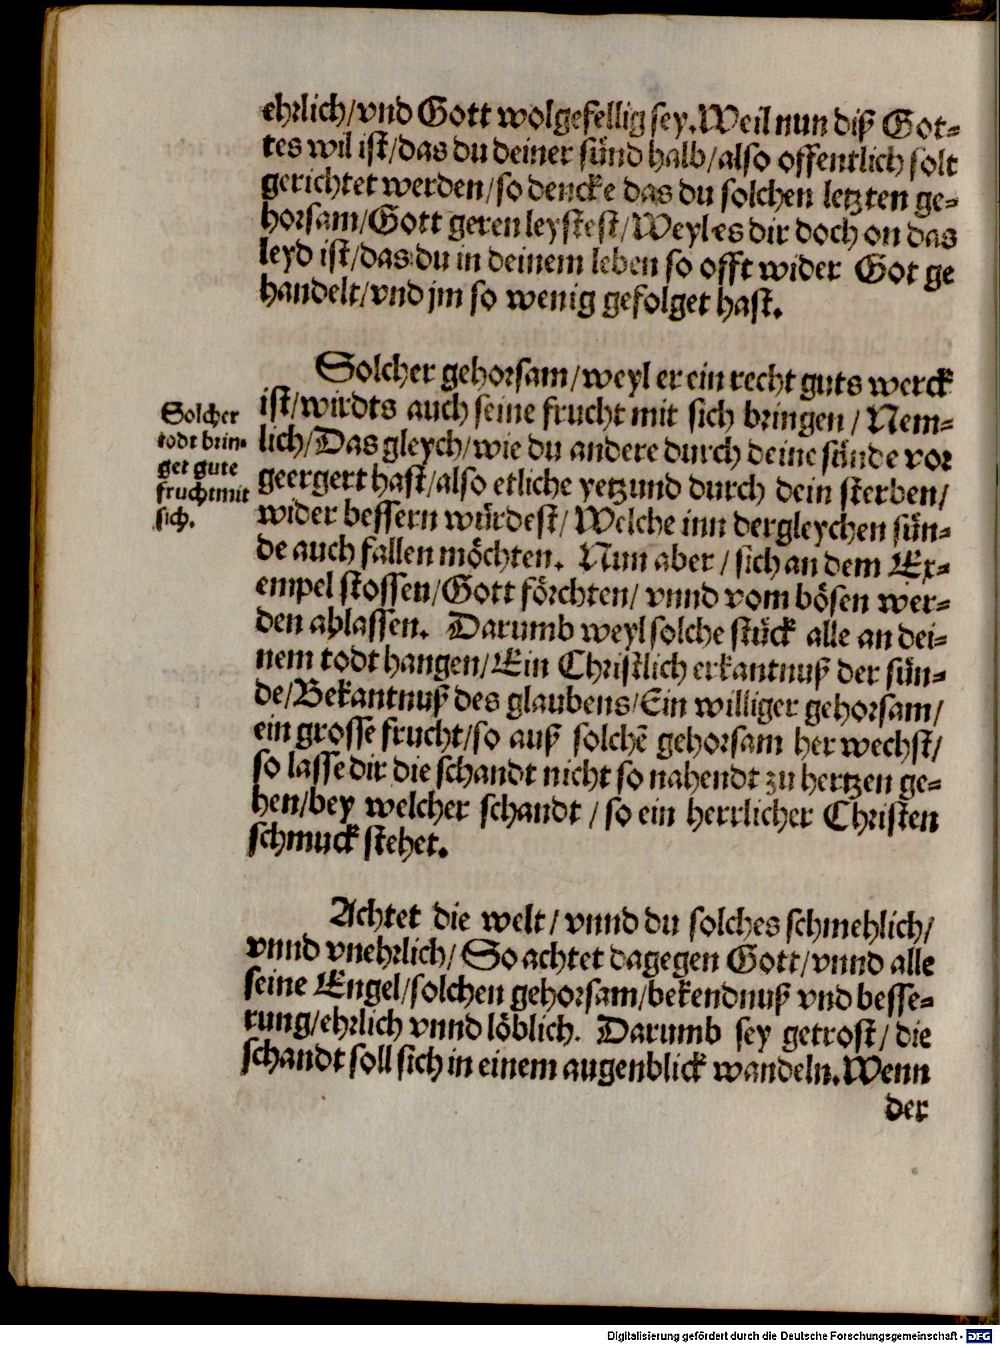 ehrlich/vnd Gott wolgefellig sey. Weil nun diß Got-
tes wil ist/das du deiner sünd halb/also offentlich solt
gerichtet werden/so dencke das du solchen letzten ge-
horsam/Gott geren leystest/Weyl es dir doch on das
leyd ist/das du in deinem leben so offt wider Got ge
handelt/vnd jm so wenig gefolget hast.
Solcher gehorsam/weyl er ein recht guts werck
ist/wirdts auch seine frucht mit sich bringen/Nem-
lich/Das gleych/wie du andere durch deine sünde vor
geergert hast/also etliche yetzund durch dein sterben/
wider bessern würdest/Welche inn dergleychen sün-
de auch fallen möchten. Nun aber/sich an dem Ex-
empel stossen/Gott förchten/vnnd vom bösen wer-
den ablassen. Darumb weyl solche stück alle an dei-
nem todt hangen/Ein Christlich erkantnuß der sün-
de/Bekantnuß des glaubens/Ein williger gehorsam/
ein grosse frucht/so auß solchẽ gehorsam her wechst/
so lasse dir die schandt nicht so nahendt zu hertzen ge-
hen/bey welcher schandt/so ein herrlicher Christen
schmuck stehet.
Solcher
todt brin-
get gute
frucht mit
sich.
Achtet die welt/vnnd du solches schmehlich/
vnnd vnehrlich/So achtet dagegen Gott/vnnd alle
seine Engel/solchen gehorsam/bekendnuß vnd besse-
rung/ehrlich vnnd löblich. Darumb sey getrost/die
schandt soll sich in einem augenblick wandeln. Wenn
der
Digitalisierung gefördert durch die Deutsche Forschungsgemeinschaft - DFG